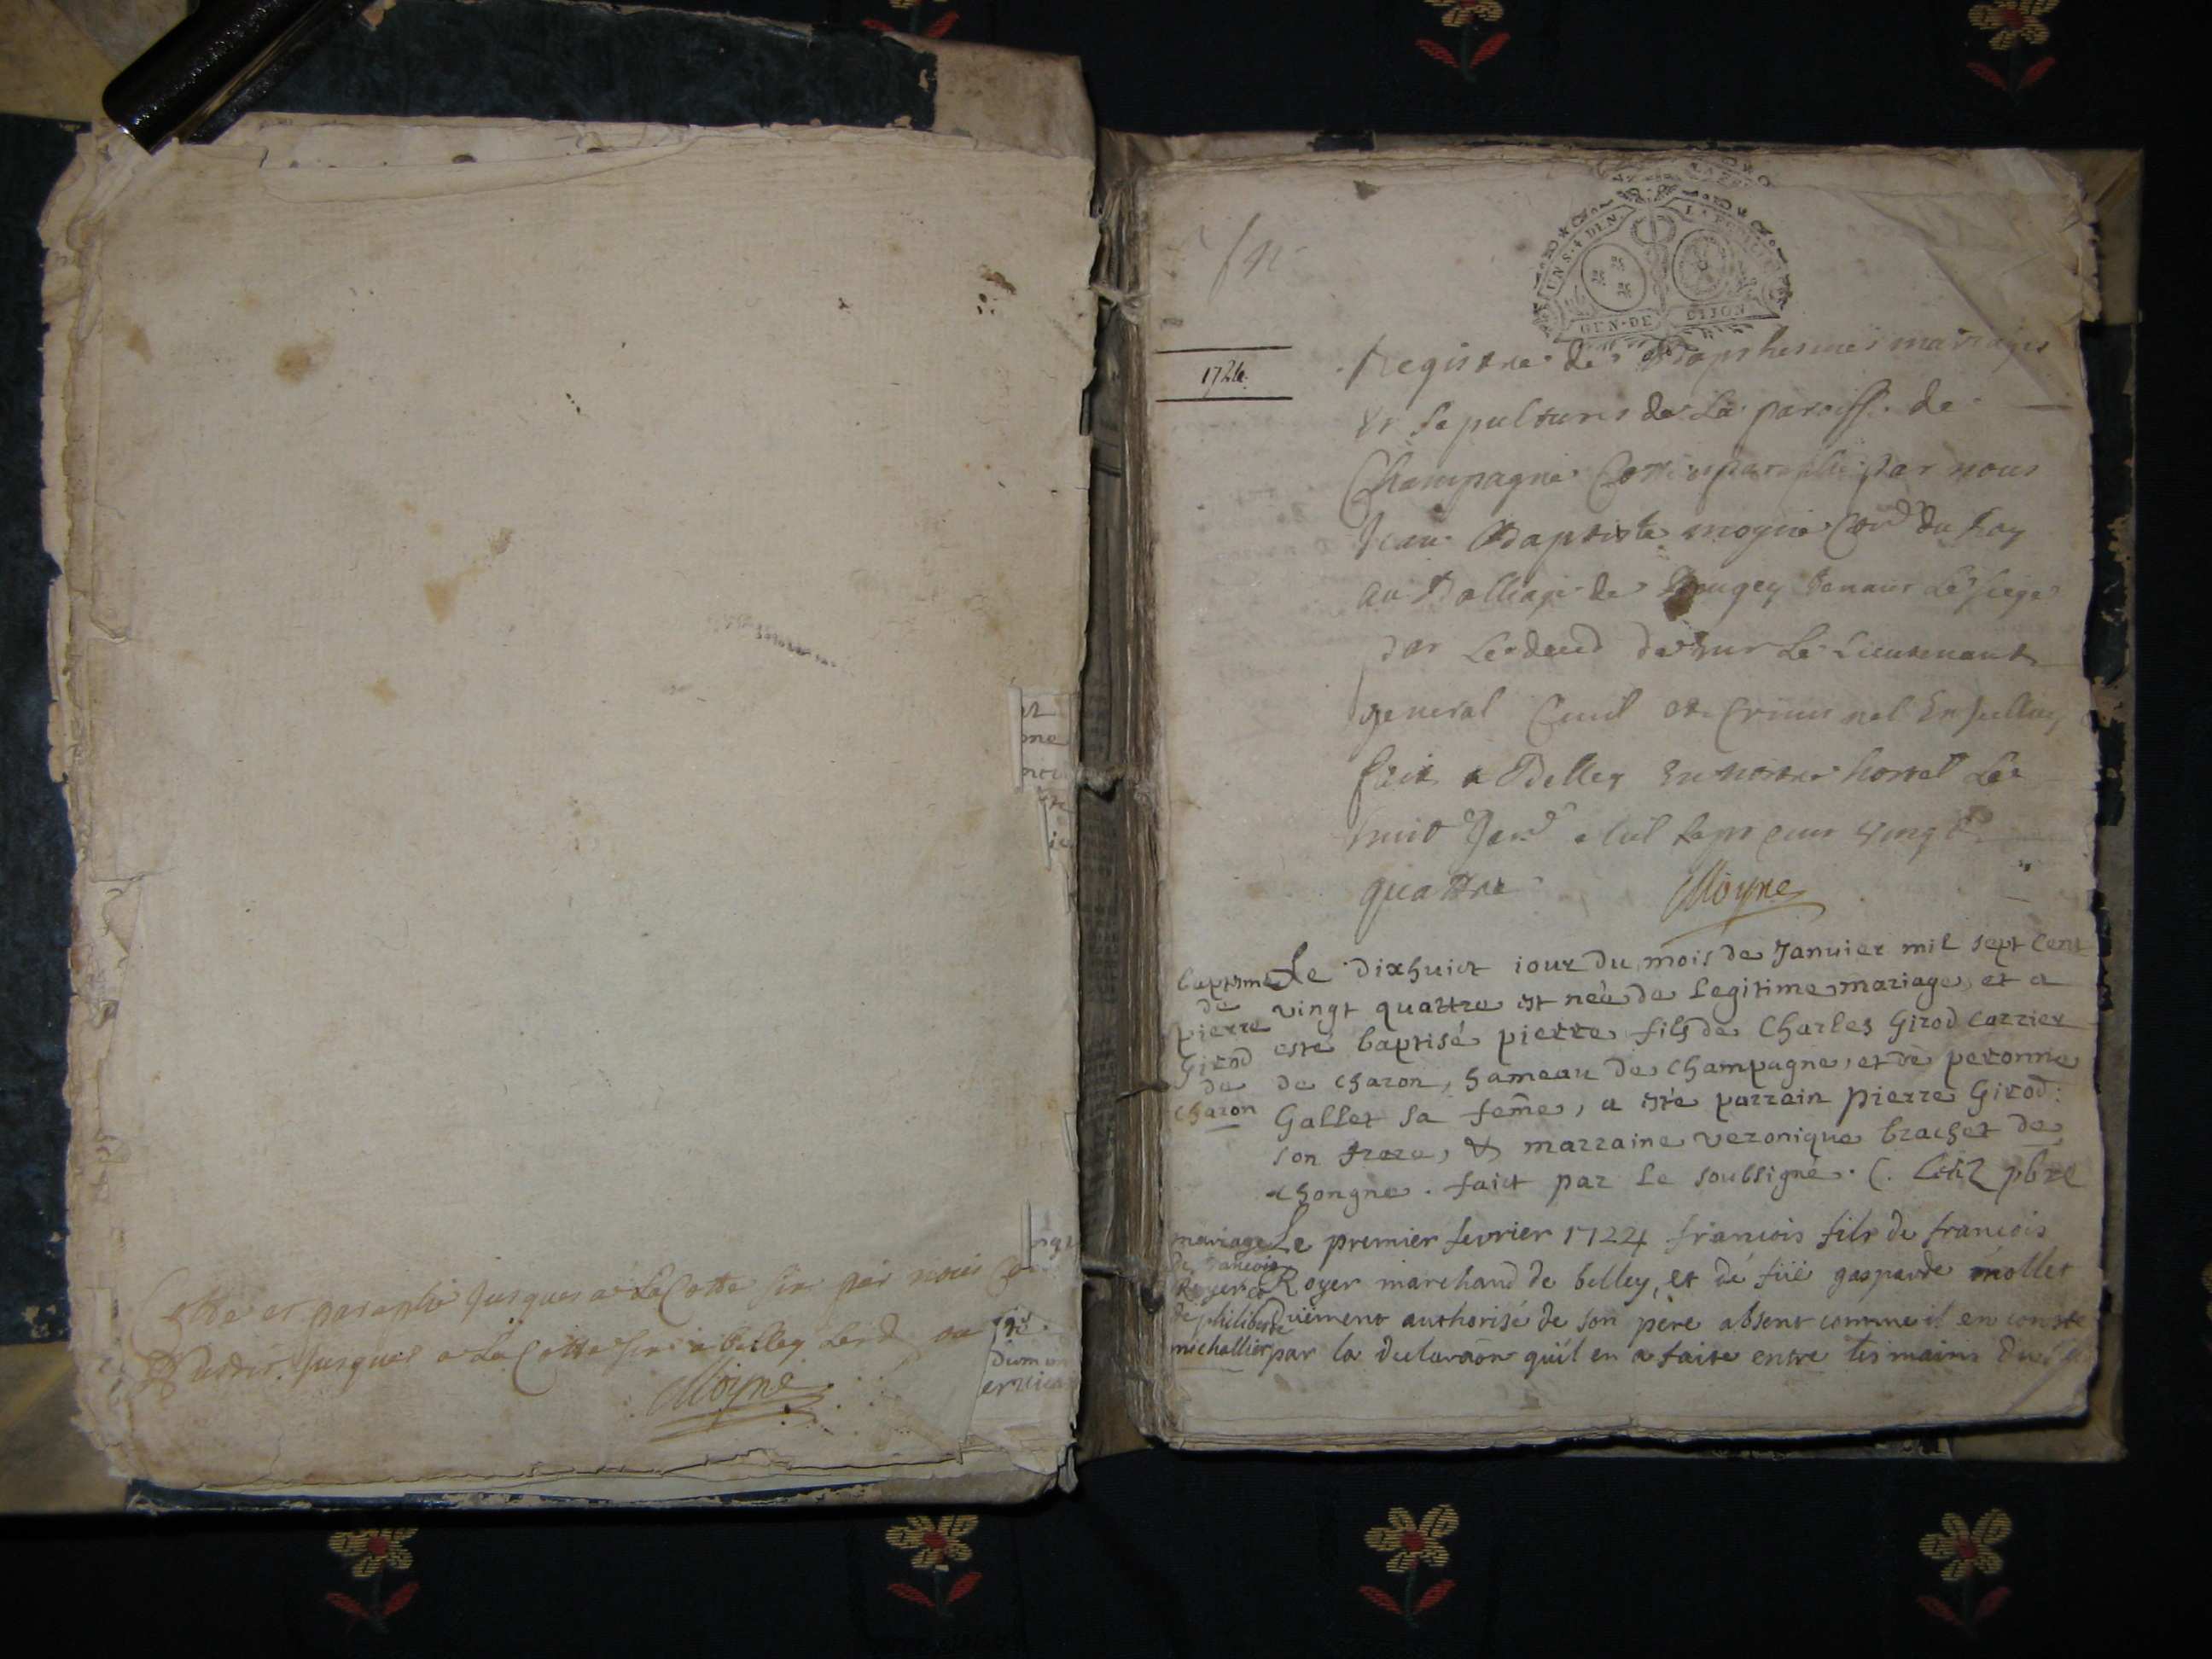 Cotte et paraphé jusques a La Cotte six par nous
jusques a La Cotte six a belley Led
Moyne
UN S. 4 DEN.
GEN. DE DIJON
1724
Registre des Baptesmes mariages
et sepultures de La paroisse de
Champagne Cotté et paraphé par nous
Jean Baptiste moyne Con.r du Roy
au Balliage de Bugey tenant Le siege
par Led de mr Le Lieutenant
general Ciuil et Criminel
fait a Belley En nostre hostel Le
huit Jan.r mil sept cens vingt
quattre Moyne
baptsme
de
pierre
Girod
de
charon
Le dixhuict iour du mois de Januier mil sept cent
vingt quattre est née de Legitime mariage, et a
esté baptisé pierre fils de Charles Girod carrier
de charon, hameau de Champagne, et de peronne
Gallet sa feme, a esté parrain pierre Girod
son frere, & marraine veronique brachet de
chongne. faict par Le soubsigné. C. pbre
mariage
de francois
Royer et
de philiberte
michallier
Le premier fevrier 1724 francois fils de francois
Royer marchand de belley, et de füe gasparde mollet
düement authorisé de son père absent comme il en conste
par la declaraõn qu'il en a faite entre les mains du